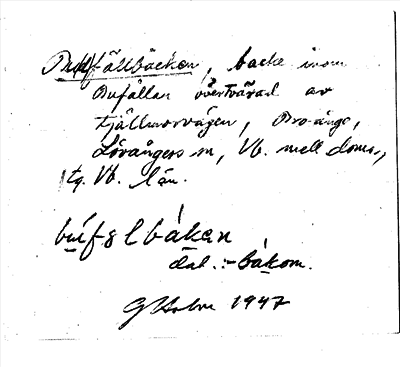 Bufällbäcken, backe inom
Bufällan övertvärad av
Fjällmorvägen, Broänge,
Lövångers sn, Vb. mell. doms.,
tg. Vb. län.
búfælbákan
dat. :- bákom.
G Holm 1947